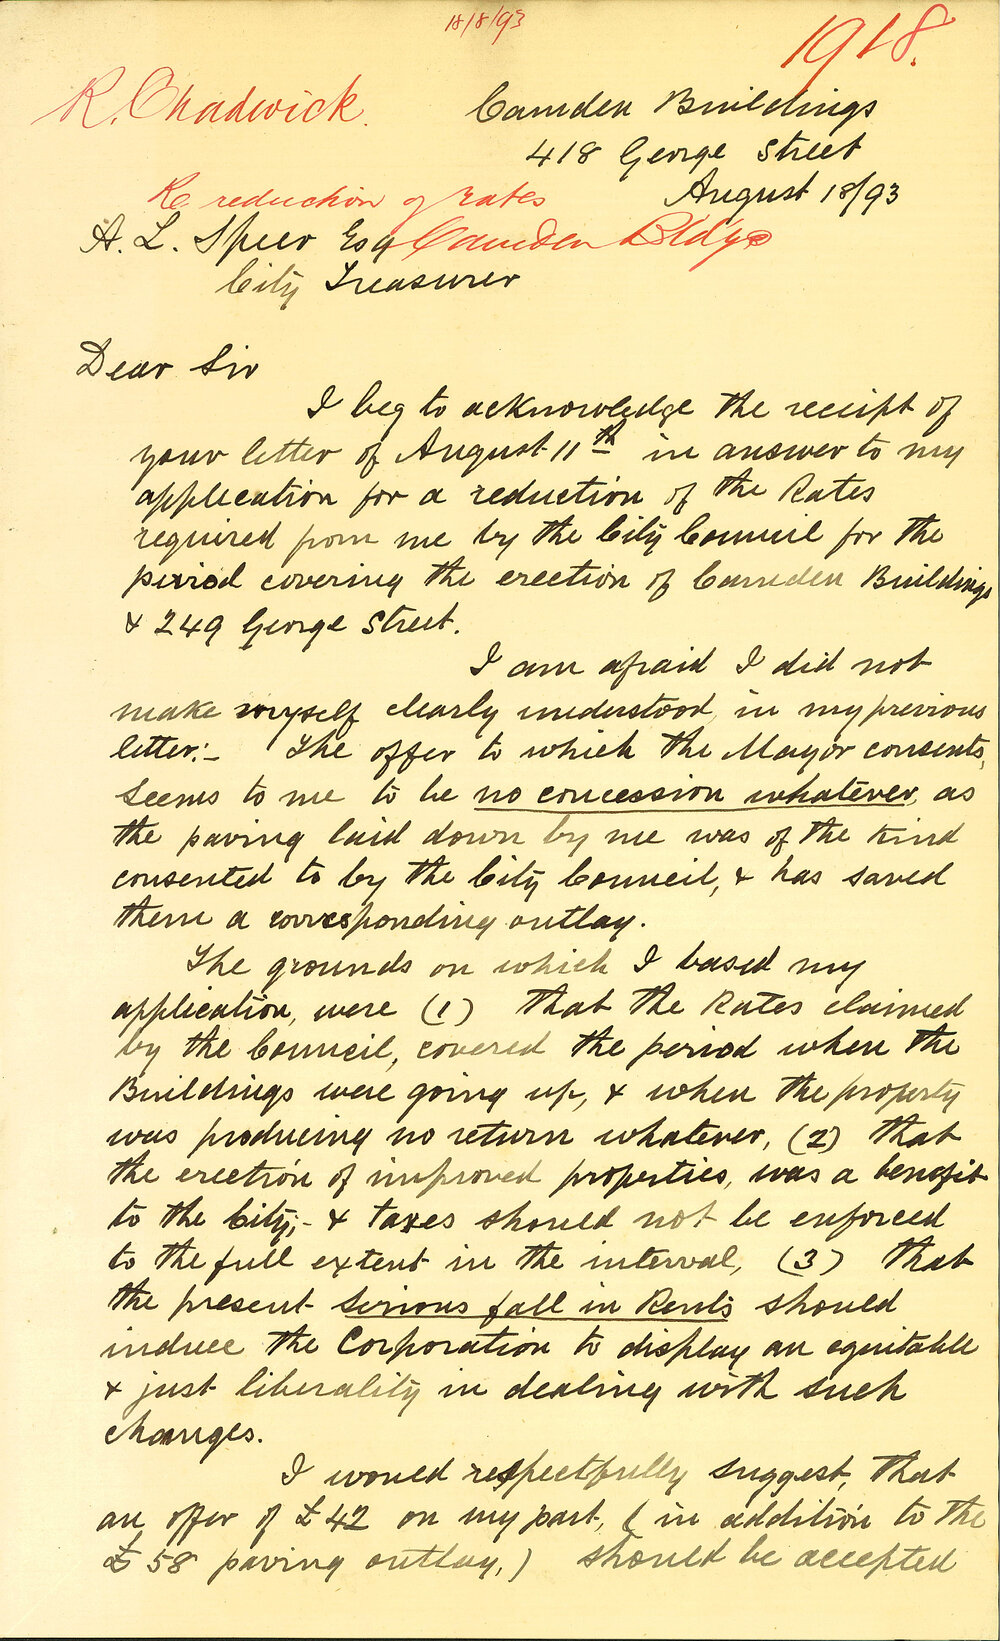 18/8/93
1918.
R. Chadwick.
Camden Buildings
418 George Street
August 18/93
Re reduction of rates
Camden Bldgs
A. L. Speer Esq
City Treasurer
Dear Sir
I beg to acknowledge the receipt of
your letter of August 11th in answer to my
application for a reduction of the Rates
required from me by the City Council for the
period covering the erection of Camden Buildings
& 249 George Street.
I am afraid I did not
make myself clearly understood in my previous
letter:- The offer to which the Mayor consents,
seems to me to be no concession whatever, as
the paving laid down by me was of the kind
consented to by the City Council, & has saved
them a corresponding outlay.
The grounds on which I based my
application, were (1) That the Rates claimed
by the Council, covered the period when the
Buildings were going up, & when the property
was producing no return whatever, (2) that
the erection of improved properties, was a benefit
to the City;- & taxes should not be enforced
to the full extent in the interval, (3) that
the present serious fall in Rents should
induce the Corporation to display an equitable
& just liberality in dealing with such
changes.
I would respectfully suggest, that
an offer of £42 on my part, (in addition to the
£58 paving outlay,) should be accepted